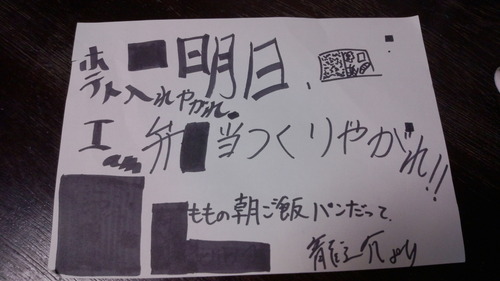 明日、
ポテト入れやがれ。
I am 弁当つくりやがれ!!
ももの朝ご飯パンだって。
より